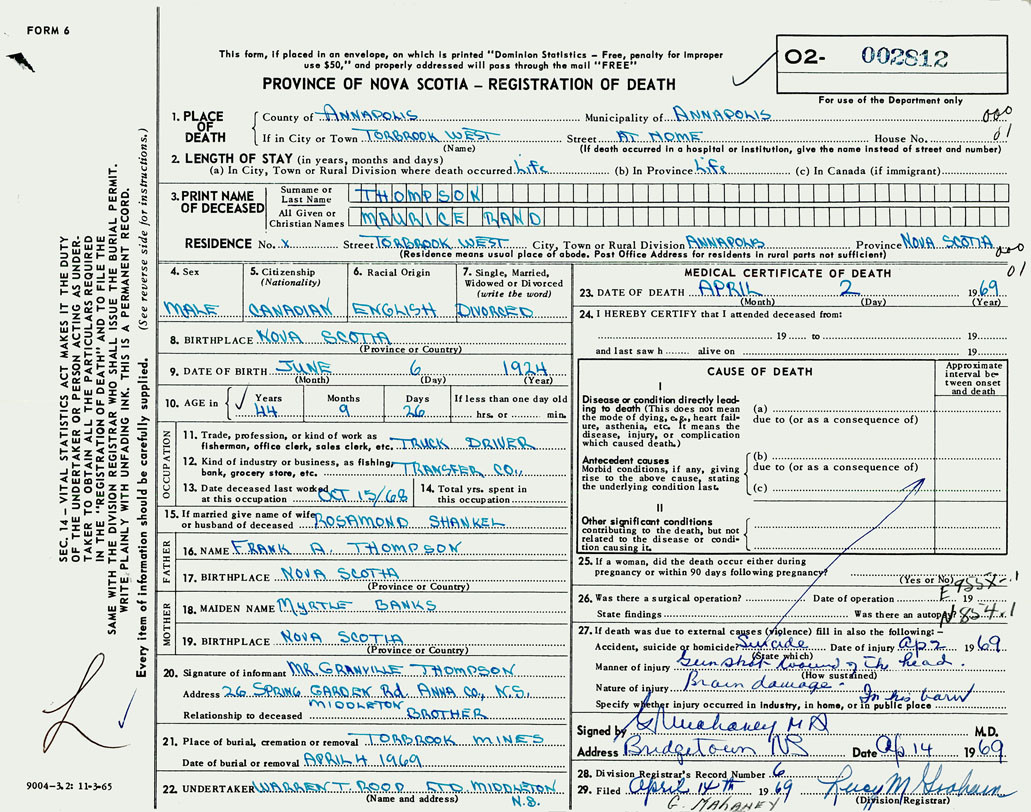 FORM 6
This form, if placed in an envelope, on which is printed "Dominion Statistics – Free, penalty for improper
use $50," and properly addressed will pass through the mail "FREE"
PROVINCE OF NOVA SCOTIA – REGISTRATION OF DEATH
O2- 002812
For use of the Department only
1. PLACE OF DEATH
County of ANNAPOLIS Municipality of ANNAPOLIS 000
If in City or Town TORBROOK WEST Street AT HOME House No. 01
(Name) (If death occurred in a hospital or institution, give the name instead of street and number)
2. LENGTH OF STAY (in years, months and days)
(a) In City, Town or Rural Division where death occurred Life (b) In Province Life (c) In Canada (if immigrant)
3. PRINT NAME OF DECEASED
Surname or Last Name THOMPSON
All Given or Christian Names MAURICE RAND
RESIDENCE No. x Street TORBROOK WEST City, Town or Rural Division ANNAPOLIS Province NOVA SCOTIA 000
(Residence means usual place of abode. Post Office Address for residents in rural parts not sufficient) 01
4. Sex
MALE
5. Citizenship (Nationality)
CANADIAN
6. Racial Origin
ENGLISH
7. Single, Married, Widowed or Divorced (write the word)
DIVORCED
8. BIRTHPLACE NOVA SCOTIA
(Province or Country)
9. DATE OF BIRTH JUNE 6 1924
(Month) (Day) (Year)
10. AGE in Years Months Days If less than one day old
44 9 26 hrs. or min.
OCCUPATION
11. Trade, profession, or kind of work as
fisherman, office clerk, sales clerk, etc. TRUCK DRIVER
12. Kind of industry or business, as fishing,
bank, grocery store, etc. TRANSFER CO.,
13. Date deceased last worked
at this occupation OCT 15/68
14. Total yrs. spent in
this occupation
15. If married give name of wife
or husband of deceased ROSAMOND SHANKEL
FATHER
16. NAME FRANK A. THOMPSON
17. BIRTHPLACE NOVA SCOTIA
(Province or Country)
MOTHER
18. MAIDEN NAME MYRTLE BANKS
19. BIRTHPLACE NOVA SCOTIA
(Province or Country)
20. Signature of informant MR. GRANVILLE THOMPSON
Address 26 SPRING GARDEN Rd. ANNA CO., N.S.
MIDDLETON
Relationship to deceased BROTHER
21. Place of burial, cremation or removal TORBROOK MINES
Date of burial or removal APRIL 4 1969
22. UNDERTAKER WARREN T ROOP LTD MIDDLETON
(Name and address) N.S.
MEDICAL CERTIFICATE OF DEATH
23. DATE OF DEATH APRIL 2 1969
(Month) (Day) (Year)
24. I HEREBY CERTIFY that I attended deceased from:
19 to 19
and last saw h alive on 19
CAUSE OF DEATH
Approximate interval between onset and death
I
Disease or condition directly leading to death (This does not mean the mode of dying, e.g., heart failure, asthenia, etc. It means the disease, injury, or complication which caused death.)
(a)
due to (or as a consequence of)
Antecedent causes
Morbid conditions, if any, giving rise to the above cause, stating the underlying condition last.
(b)
due to (or as a consequence of)
(c)
II
Other significant conditions
contributing to the death, but not related to the disease or condition causing it.
25. If a woman, did the death occur either during
pregnancy or within 90 days following pregnancy?
(Yes or No) E955X-.1
26. Was there a surgical operation? Date of operation 19
State findings Was there an autopsy? N854x1
27. If death was due to external causes (violence) fill in also the following: –
Accident, suicide or homicide? Suicide Date of injury Ap 2 1969.
(State which)
Manner of injury Gunshot wound of the head.
(How sustained)
Nature of injury Brain damage - In his barn
Specify whether injury occurred in industry, in home, or in public place
Signed by G Mahaney M D M.D.
Address Bridgetown NS Date Ap 14 1969
28. Division Registrar's Record Number 6
29. Filed April 14th 1969
(Division Registrar)
G. MAHANEY
SEC. 14 – VITAL STATISTICS ACT MAKES IT THE DUTY
OF THE UNDERTAKER OR PERSON ACTING AS UNDER-
TAKER TO OBTAIN ALL THE PARTICULARS REQUIRED
IN THE "REGISTRATION OF DEATH" AND TO FILE THE
SAME WITH THE DIVISION REGISTRAR WHO SHALL ISSUE THE BURIAL PERMIT.
WRITE PLAINLY WITH UNFADING INK. THIS IS A PERMANENT RECORD.
Every item of information should be carefully supplied. (See reverse side for instructions.)
9004-3.2: 11-3-65